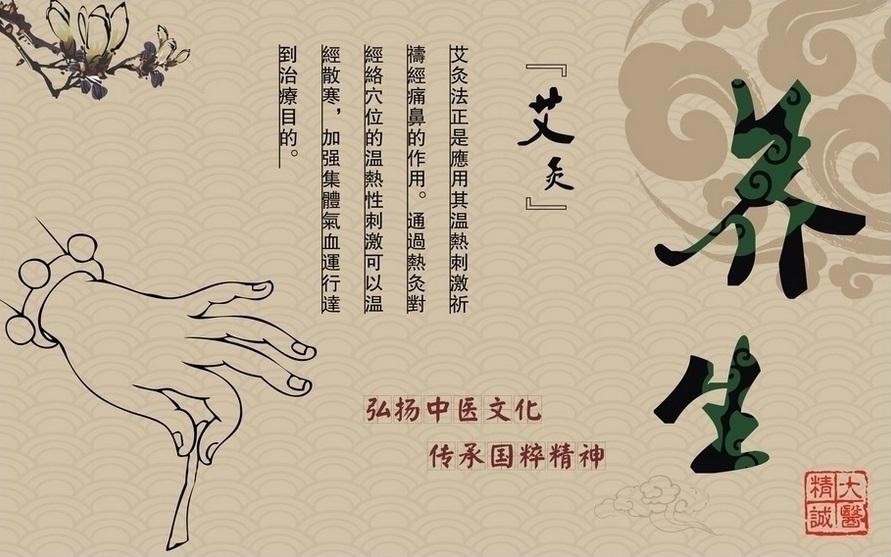 养生
『艾灸』
艾灸法正是應用其温熱刺激祈
禱經痛鼻的作用。通過熱灸對
經絡穴位的温熱性刺激可以温
經散寒，加强集體氣血運行達
到治療目的。
弘扬中医文化
传承国粹精神
大醫
精誠